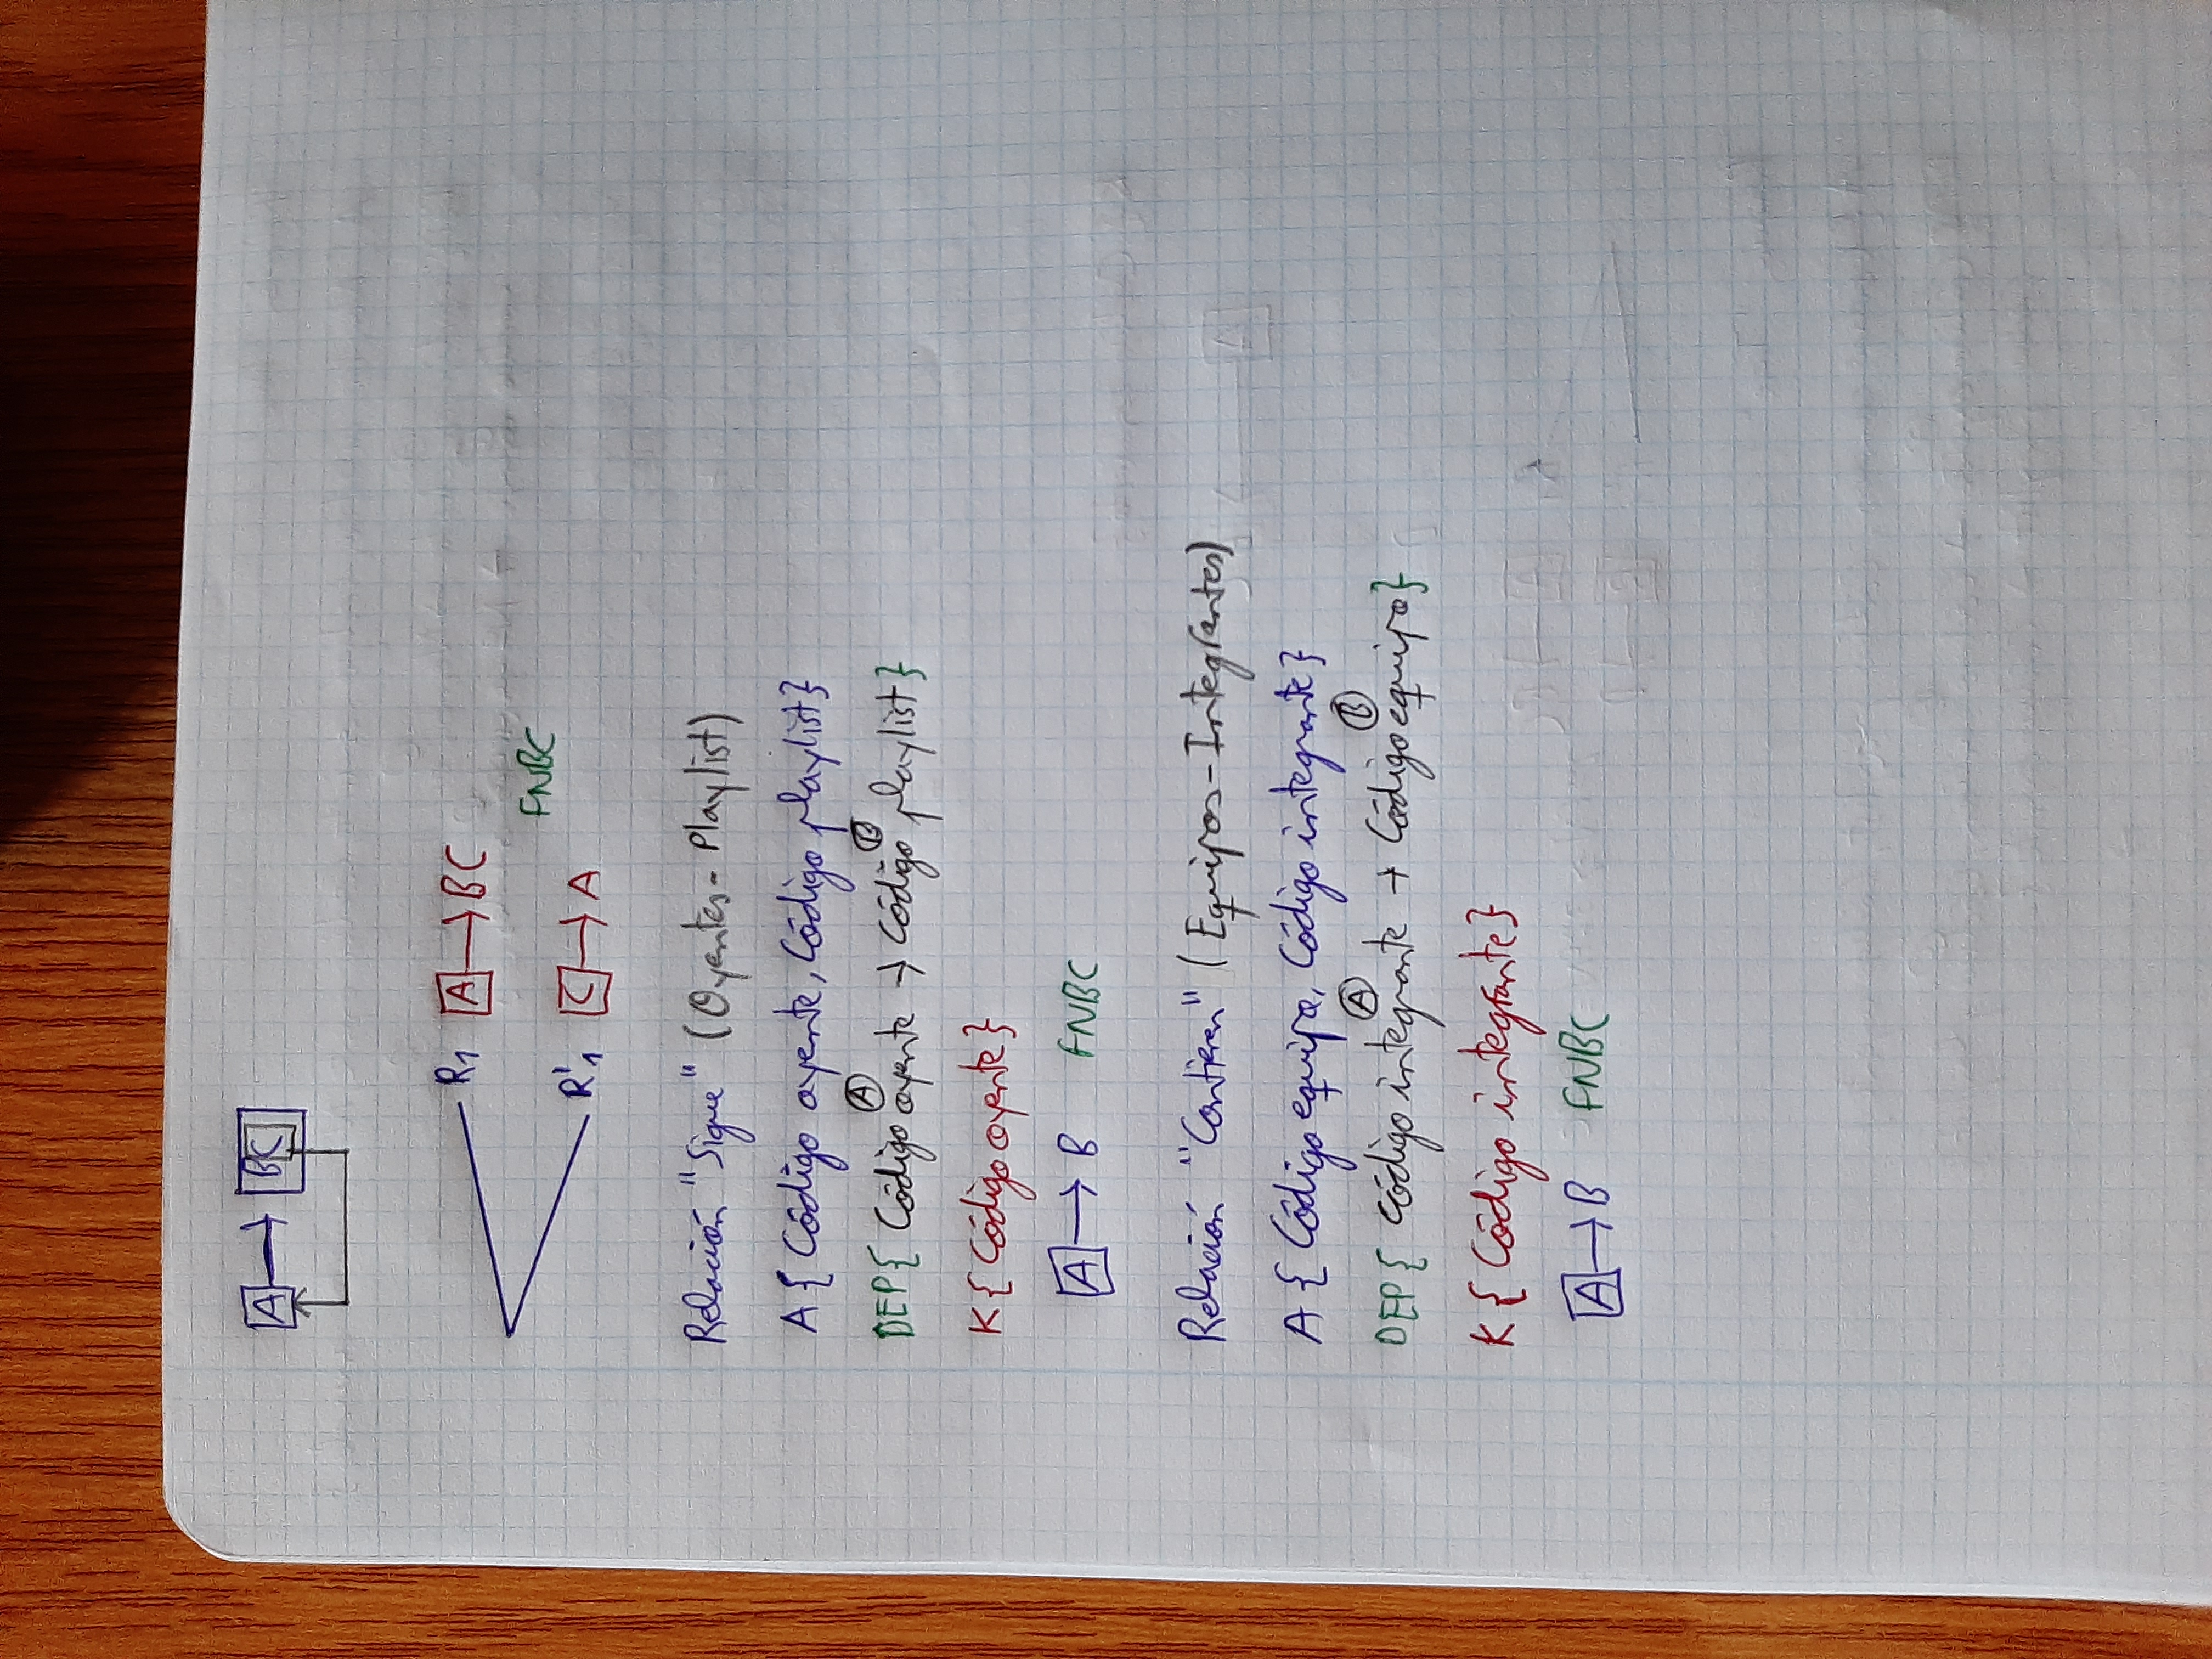 A → BC
R1 A → BC
FNBC
R'1 C → A
Relación "Sigue" (Oyentes - Playlist)
A { Código oyente, Código playlist}
A B
DEP{ Código oyente → Código playlist}
K { Código oyente }
A → B FNBC
Relación "Contienen" (Equipos - Integrantes)
A { Código equipo, Código integrante}
A B
DEP{ Código integrante → Código equipo}
K { Código integrante}
A → B FNBC